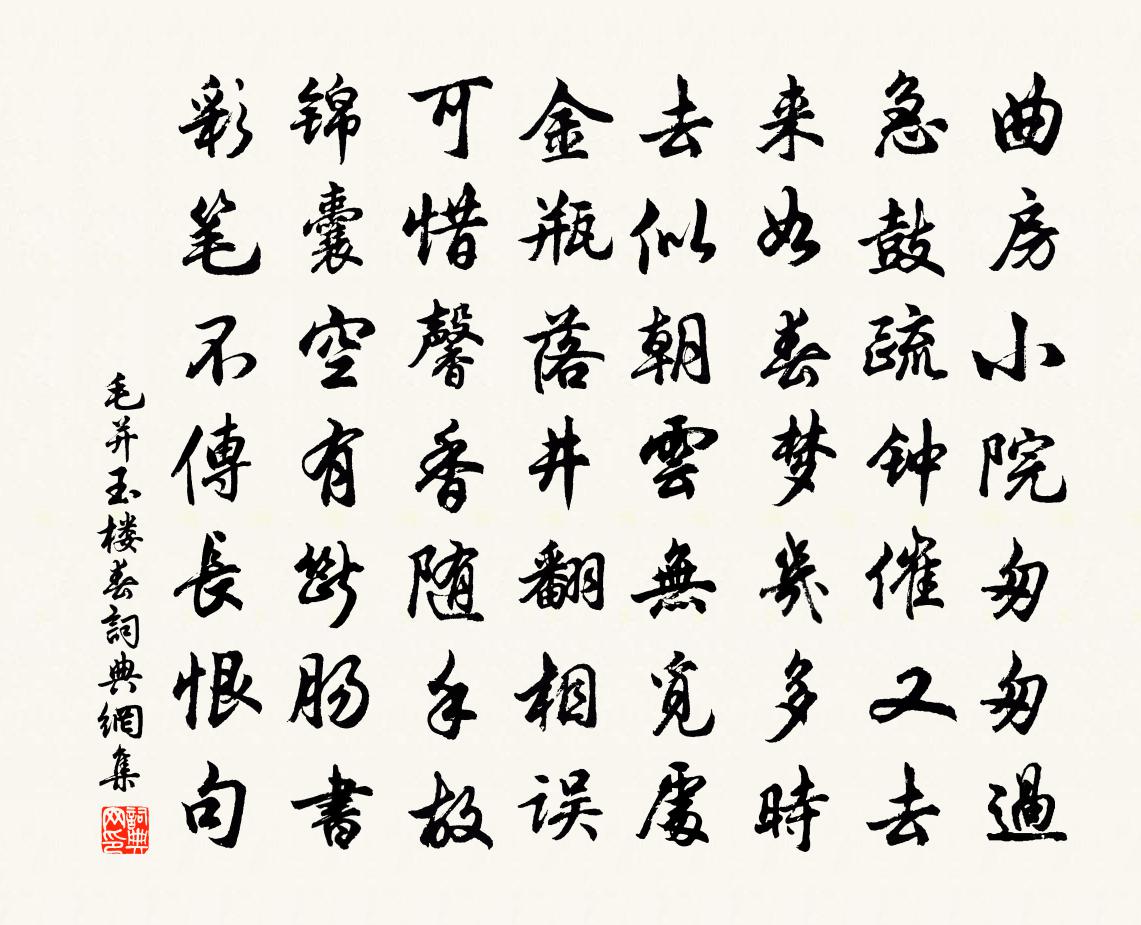 曲房小院匆匆過
急鼓疏钟催又去
来如春梦幾多時
去似朝雲無覓處
金瓶落井翻相误
可惜馨香随手故
锦囊空有斷肠書
彩笔不傳長恨句
毛并玉楼春詞典網集
詞典网印